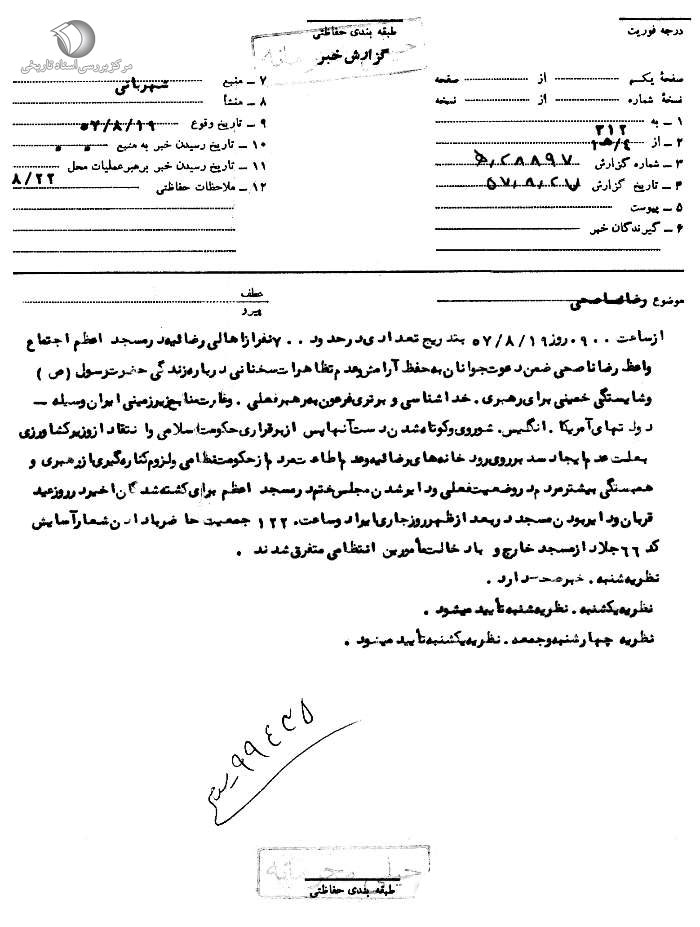 درجه فوریت
طبقه بندی حفاظتی
گزارش خبر
مرکز بررسی اسناد تاریخی
صفحهٔ یکم از صفحه
نسخهٔ شماره از نسخه
۱ ــ به ۳۱۲
۲ ــ از
۳ ــ شماره گزارش
۴ ــ تاریخ گزارش
۵ ــ پیوست
۶ ــ گیرندگان خبر
۷ ــ منبع شهربانی
۸ ــ منشأ
۹ ــ تاریخ وقوع ۵۷/۸/۱۹
۱۰ ــ تاریخ رسیدن خبر به منبع
۱۱ ــ تاریخ رسیدن خبر برهبر عملیات محل
۱۲ ــ ملاحظات حفاظتی ۸/۲۲
موضوع رضا ناصحی
عطف
پیرو
از ساعت ۰۹۰۰ روز ۵۷/۸/۱۹ بتدریج تعدادی در حدود ۷۰۰ نفر از اهالی رضائیه در مسجد اعظم اجتماع
واعظ رضا ناصحی ضمن دعوت جوانان به حفظ آرامش و عدم تظاهرات سخنانی درباره زندگی حضرت رسول (ص)
و شایستگی خمینی برای رهبری . خداشناسی و برتری فرعون به رهبر فعلی . و غارت منابع زیرزمینی ایران وسیله ــ
دولتهای آمریکا . انگلیس . شوروی و کوتاه شدن دست آنها پس از برقراری حکومت اسلامی و انتقاد از وزیر کشاورزی
بعلت عدم ایجاد سد بر روی رودخانه‌های رضائیه و عدم اطاعت مردم از حکومت نظامی و لزوم کناره‌گیری از رهبری و
همبستگی بیشتر مردم در وضعیت فعلی و دایر شدن مجلس ختم در مسجد اعظم برای کشته‌شدگان اخیر در روز عید
قربان و دایر بودن مسجد در بعد از ظهر روز جاری ایراد و ساعت ۱۲۲۰ جمعیت حاضر با دادن شعار آسایش
کد ۶۶ جلاد از مسجد خارج و با دخالت مأمورین انتظامی متفرق شدند .
نظریه شنبه . خبر صحت دارد .
نظریه یکشنبه . نظریه شنبه تأیید میشود .
نظریه چهارشنبه و جمعه . نظریه یکشنبه تأیید میشود .
خیلی محرمانه
طبقه بندی حفاظتی